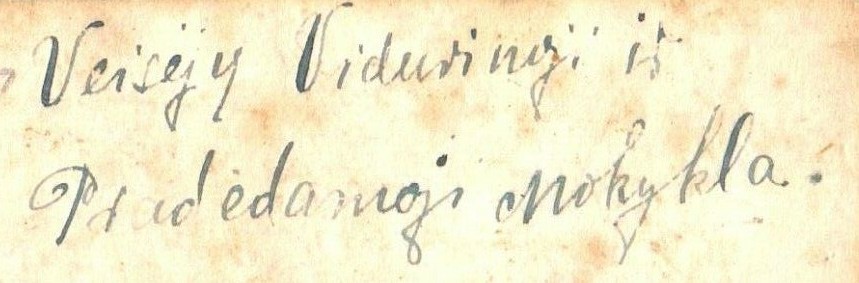 Veisėjų Vidurinoji ir
Pradėdamoji Mokykla.